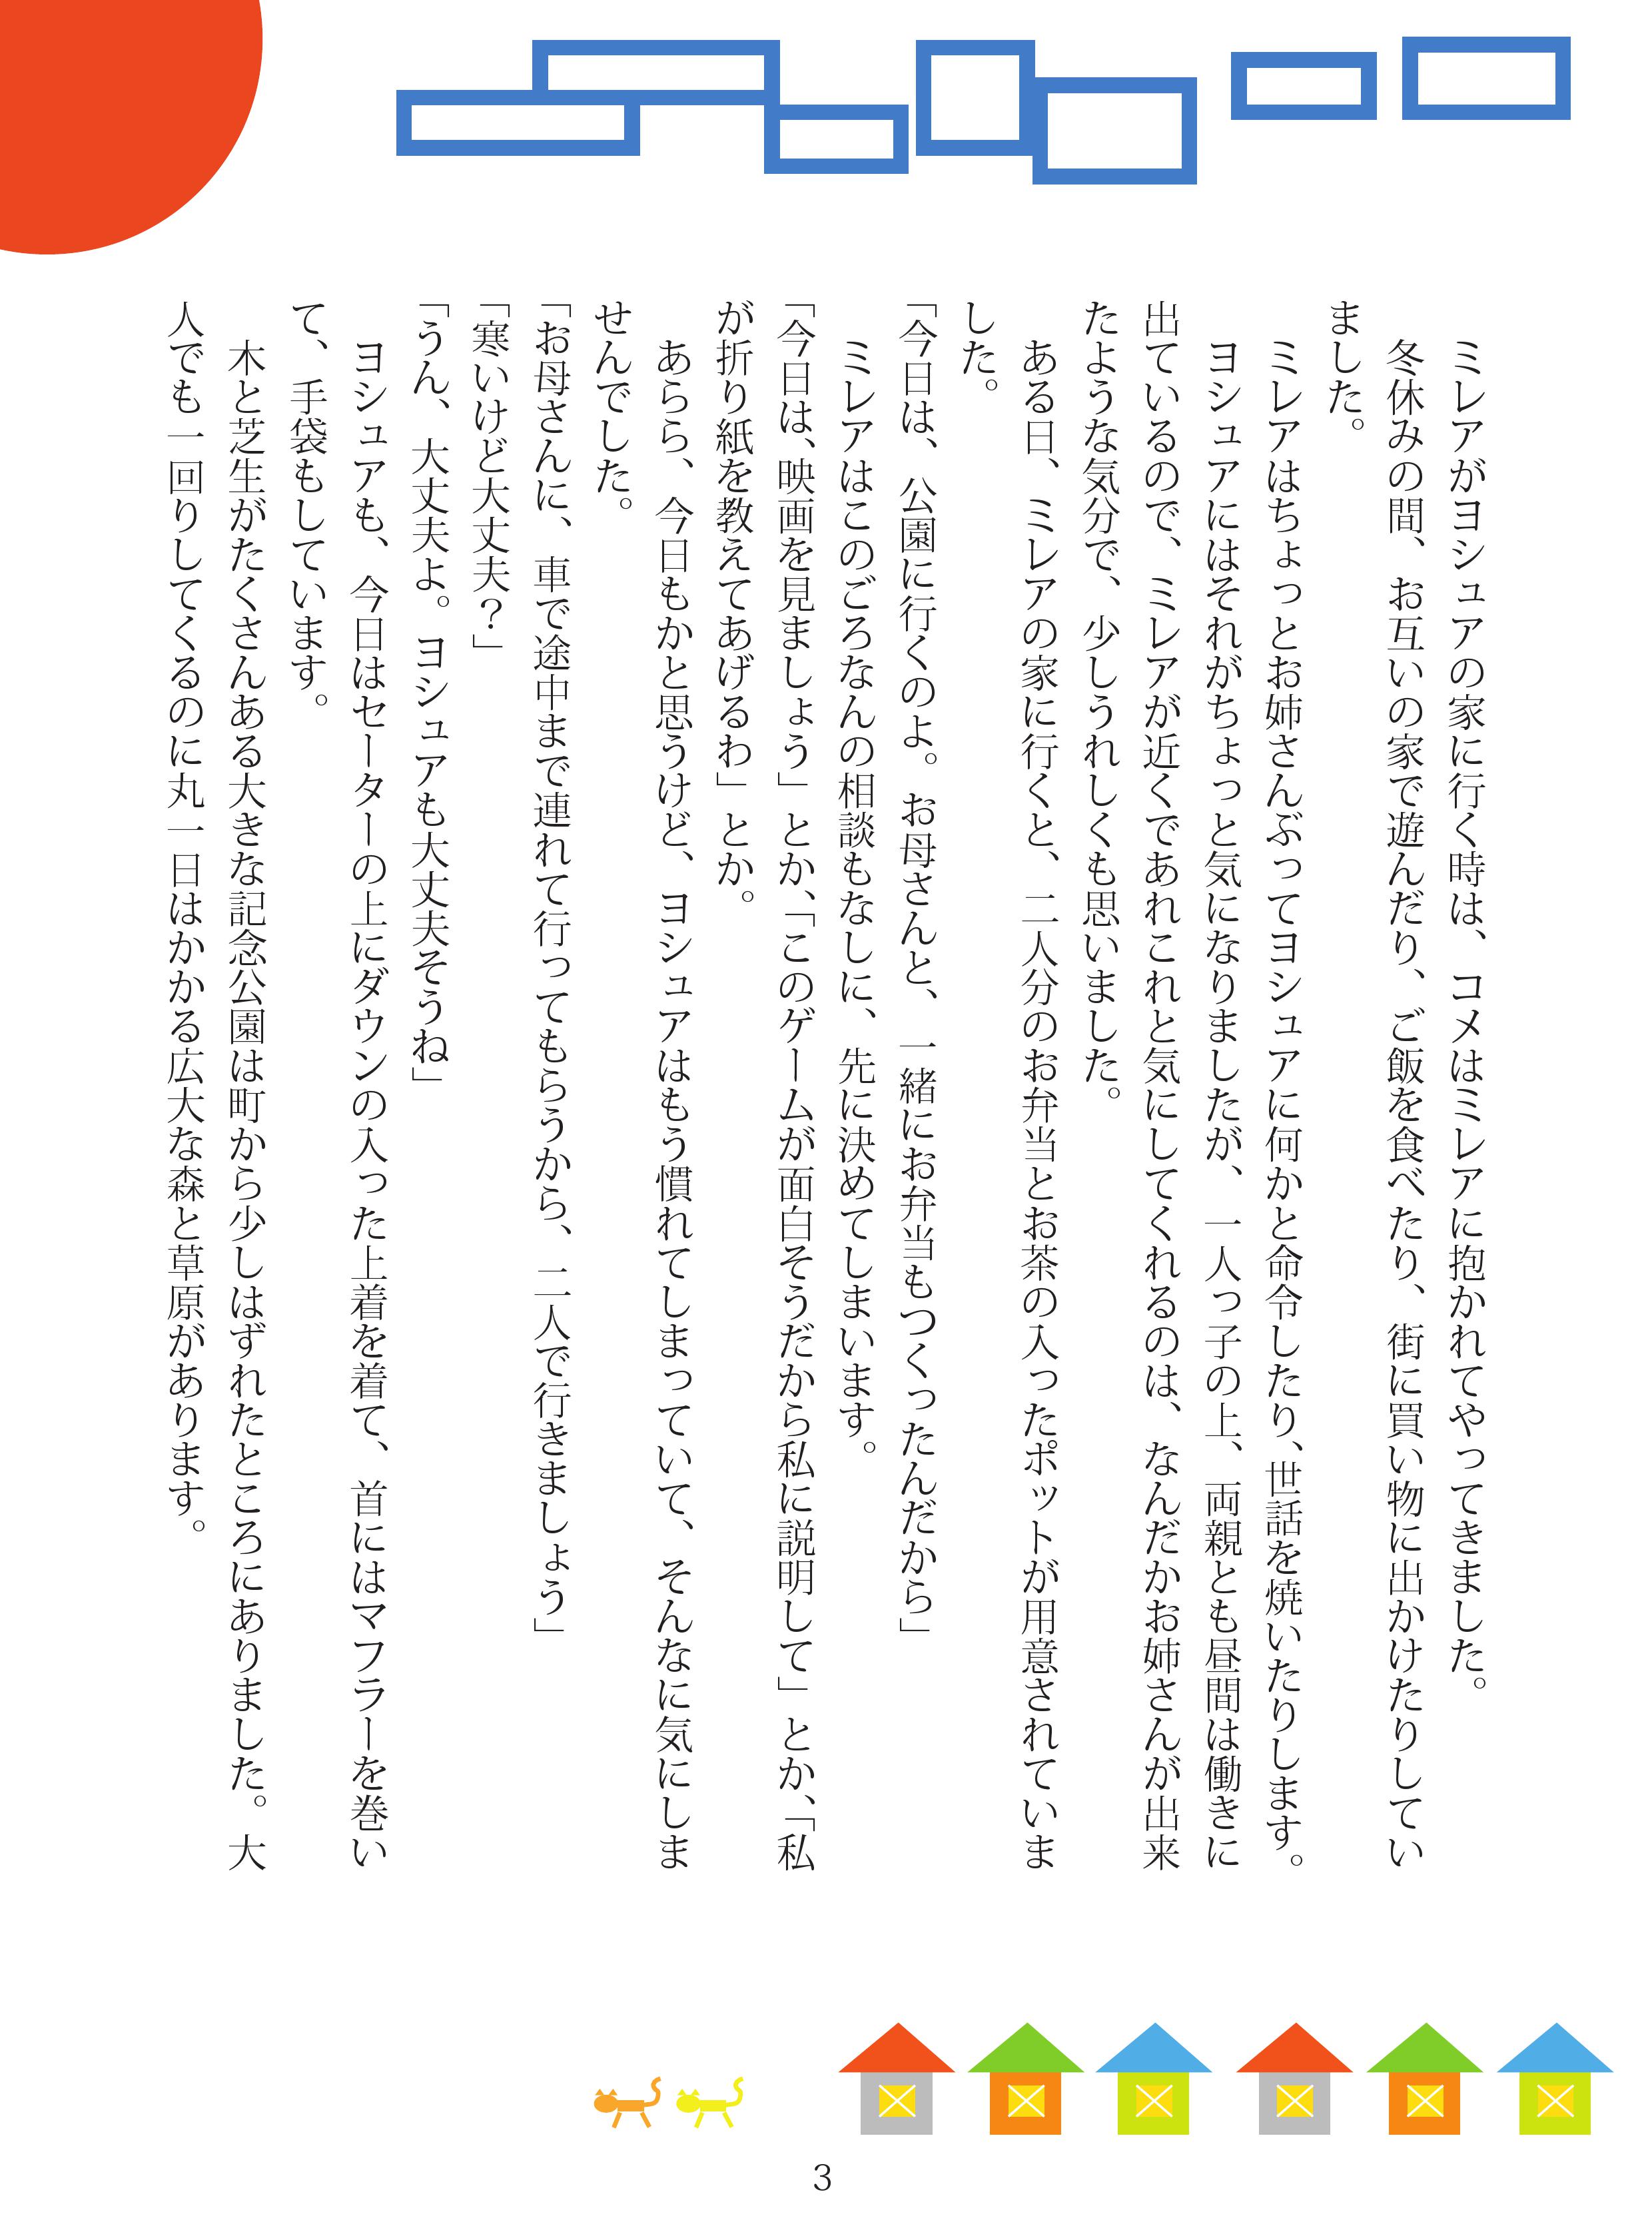 ミレアがヨシュアの家に行く時は、コメはミレアに抱かれてやってきました。
　冬休みの間、お互いの家で遊んだり、ご飯を食べたり、街に買い物に出かけたりしてい
ました。
　ミレアはちょっとお姉さんぶってヨシュアに何かと命令したり、世話を焼いたりします。
　ヨシュアにはそれがちょっと気になりましたが、一人っ子の上、両親とも昼間は働きに
出ているので、ミレアが近くであれこれと気にしてくれるのは、なんだかお姉さんが出来
たような気分で、少しうれしくも思いました。
　ある日、ミレアの家に行くと、二人分のお弁当とお茶の入ったポットが用意されていま
した。
「今日は、公園に行くのよ。お母さんと、一緒にお弁当もつくったんだから」
　ミレアはこのごろなんの相談もなしに、先に決めてしまいます。
「今日は、映画を見ましょう」とか、「このゲームが面白そうだから私に説明して」とか、「私
が折り紙を教えてあげるわ」とか。
　あらら、今日もかと思うけど、ヨシュアはもう慣れてしまっていて、そんなに気にしま
せんでした。
「お母さんに、車で途中まで連れて行ってもらうから、二人で行きましょう」
「寒いけど大丈夫？」
「うん、大丈夫よ。ヨシュアも大丈夫そうね」
　ヨシュアも、今日はセーターの上にダウンの入った上着を着て、首にはマフラーを巻い
て、手袋もしています。
　木と芝生がたくさんある大きな記念公園は町から少しはずれたところにありました。大
人でも一回りしてくるのに丸一日はかかる広大な森と草原があります。
3